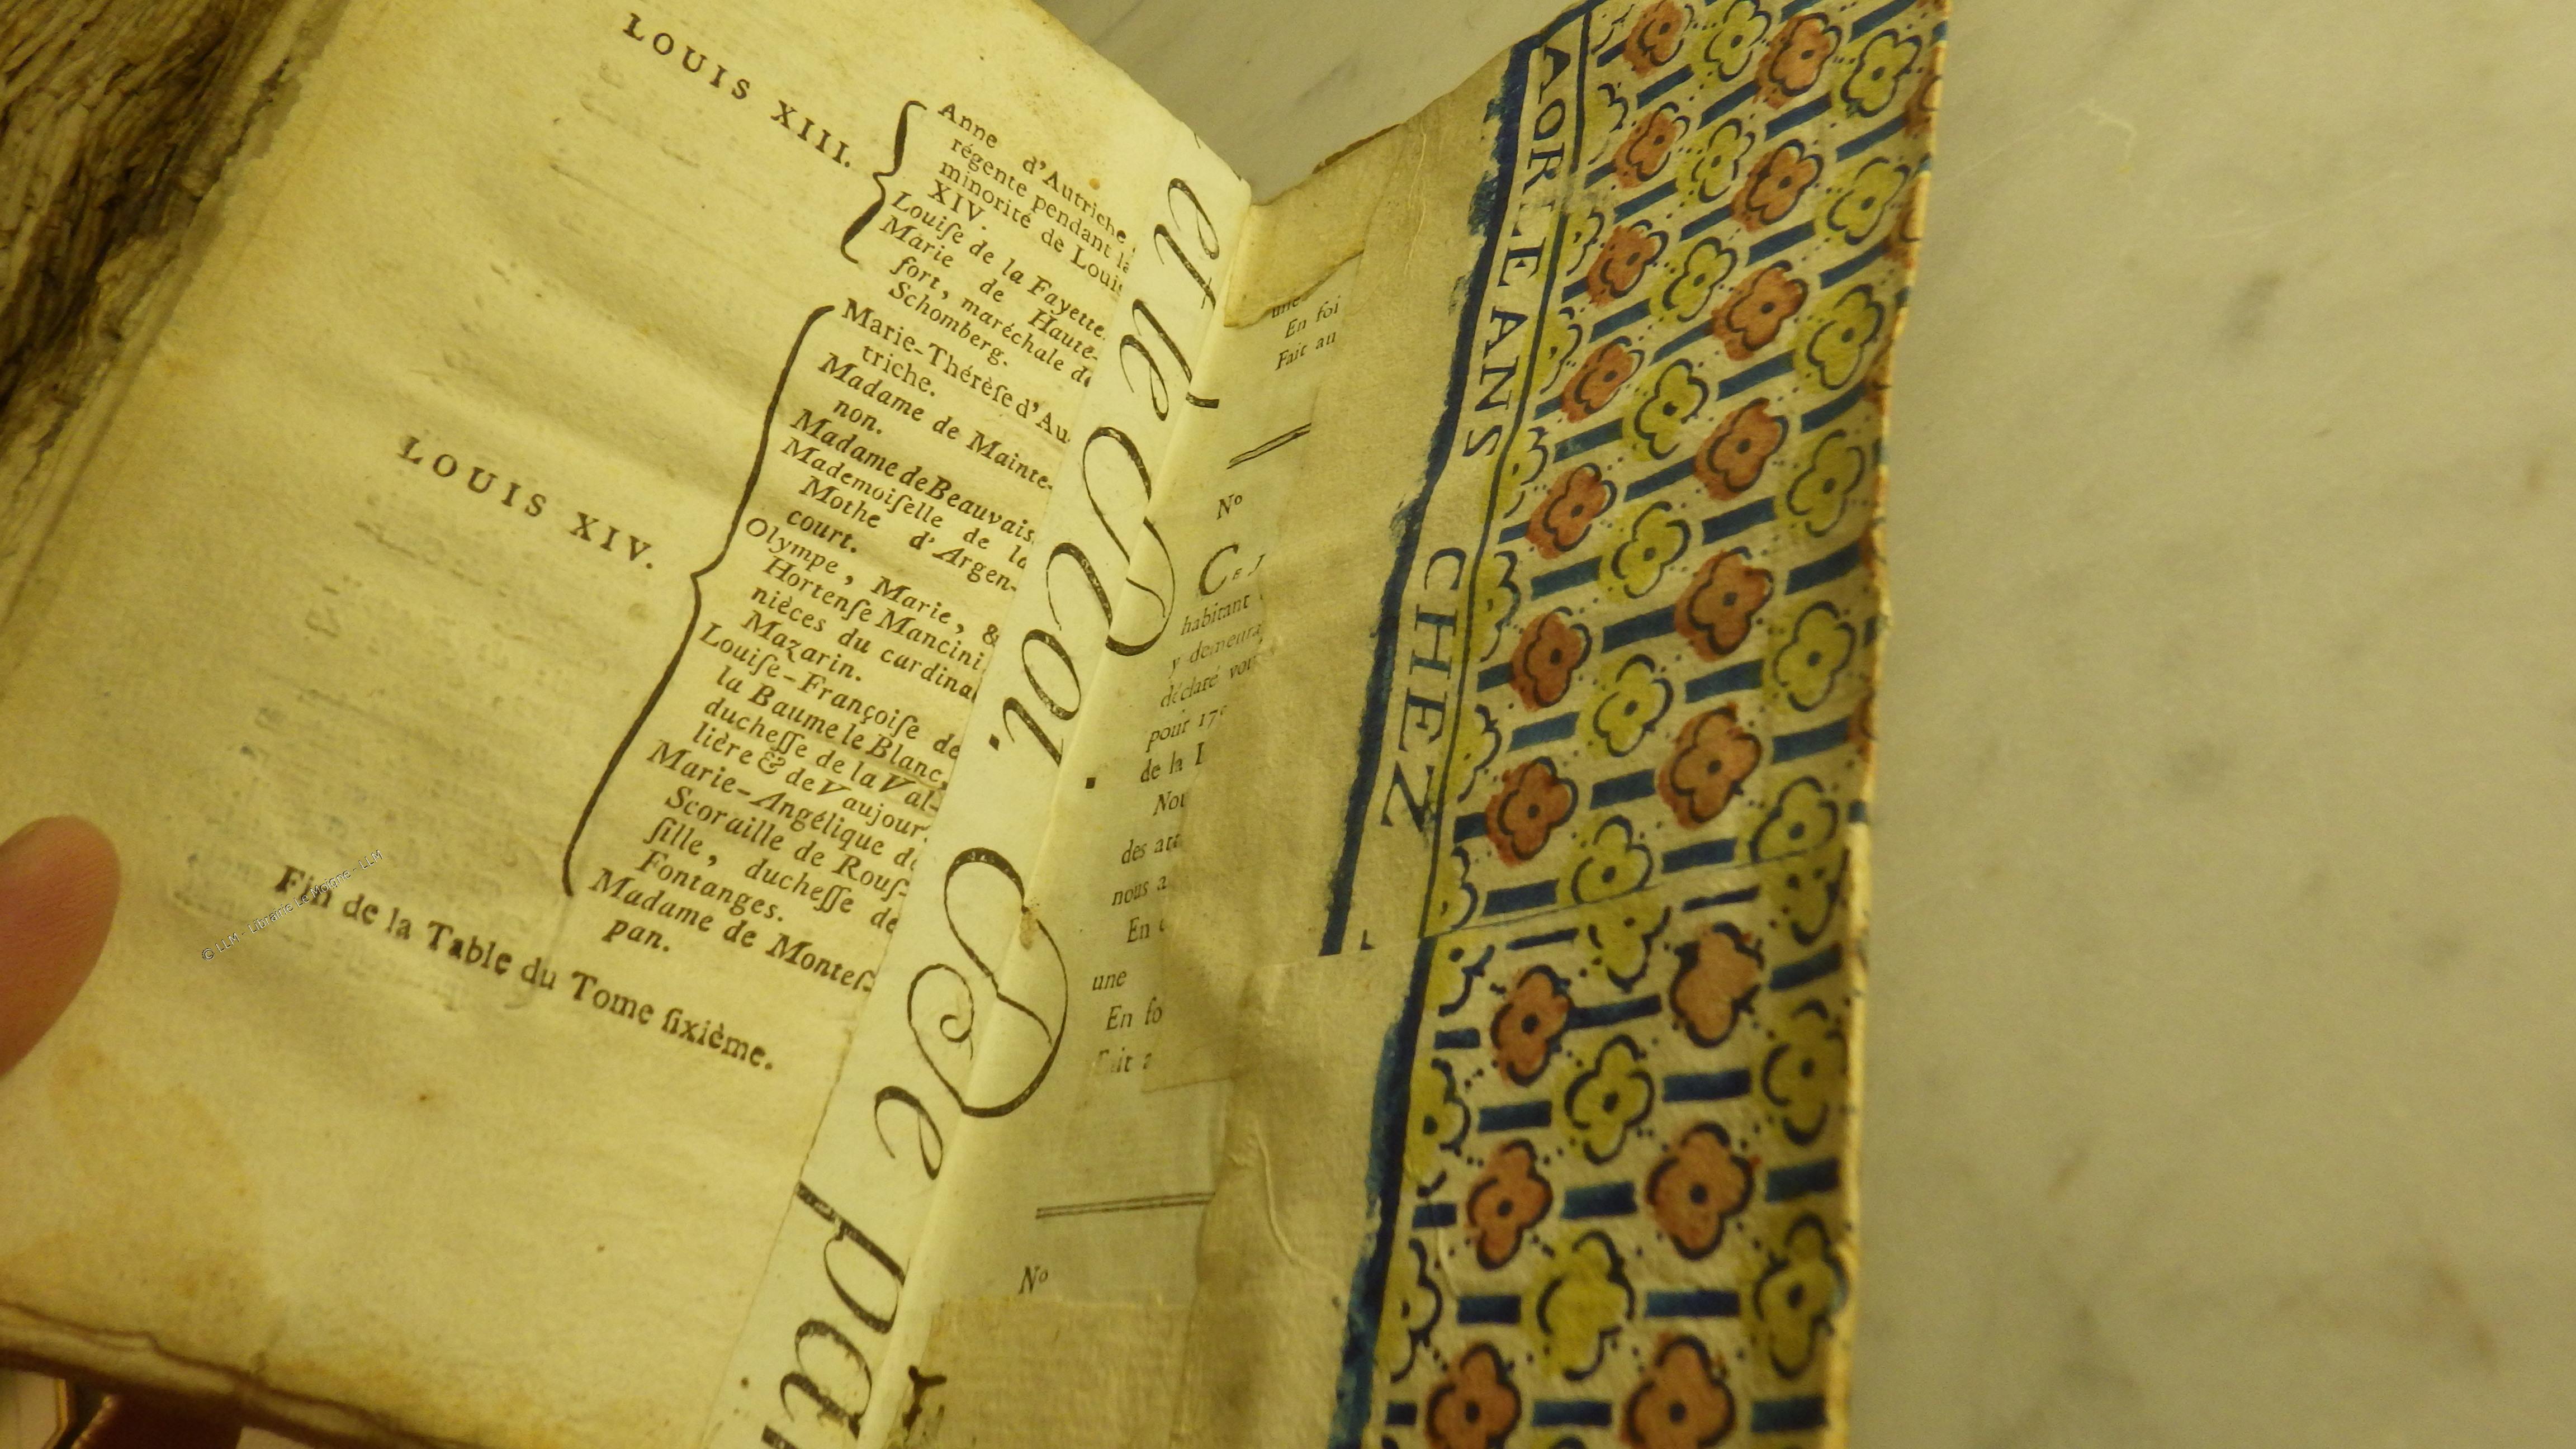 LOUIS XIII.
Anne d'Autriche,
régente pendant la
minorité de Louis
XIV.
Louiſe de la Fayette.
Marie de Haute-
fort, maréchale de
Schomberg.
LOUIS XIV.
Marie-Thérèſe d'Au
triche.
Madame de Mainte-
non.
Madame de Beauvais.
Mademoiſelle de la
Mothe d'Argen-
court.
Olympe, Marie, &
Hortenſe Mancini,
nièces du cardinal
Mazarin.
Louiſe-Françoiſe de
la Baume le Blanc,
ducheſſe de la Val-
lière & de Vaujour
Marie-Angélique de
Scoraille de Rouſ-
ſille, ducheſſe de
Fontanges.
Madame de Monteſ-
pan.
Fin de la Table du Tome ſixième.
© LLM - Librairie Le Moigne - LLM
une
En foi
Fait au
No
CE
habitant
y demeura
déclaré vou
pour 17
de la
Nou
des att
nous a
En
une
En fo
Fait a
No
A ORLEANS
CHEZ